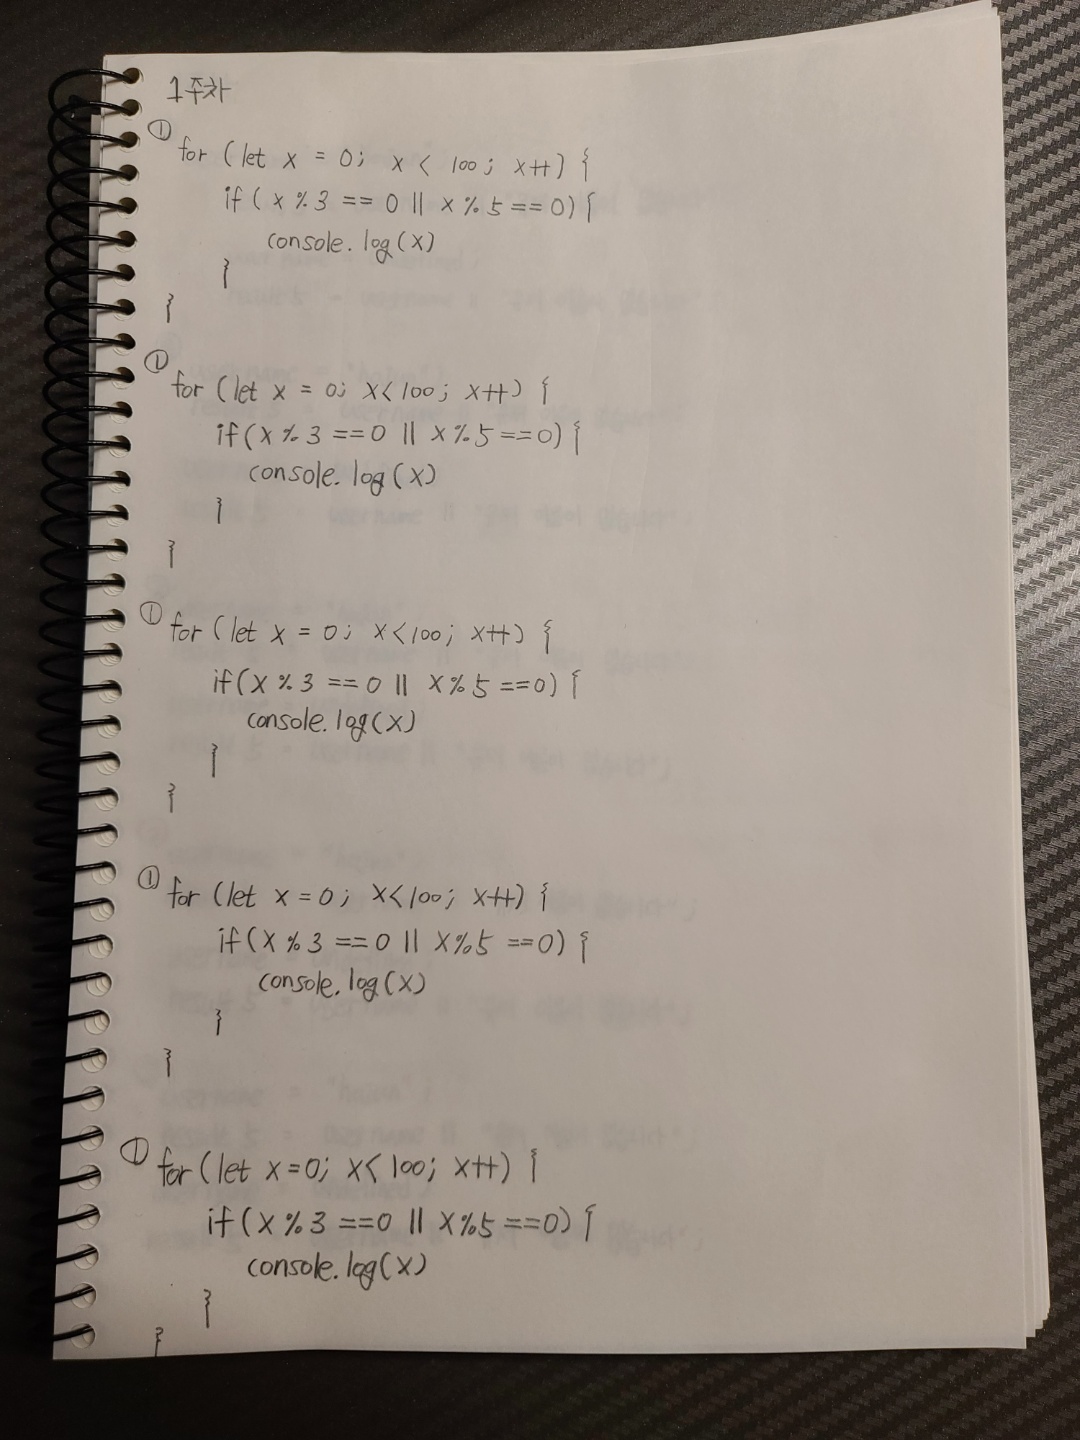 1주차
① for (let x = 0; x < 100; x++) {
if (x % 3 == 0 || x % 5 == 0) {
console.log(x)
}
}
① for (let x = 0; x < 100; x++) {
if (x % 3 == 0 || x % 5 == 0) {
console.log(x)
}
}
① for (let x = 0; x < 100; x++) {
if (x % 3 == 0 || x % 5 == 0) {
console.log(x)
}
}
① for (let x = 0; x < 100; x++) {
if (x % 3 == 0 || x % 5 == 0) {
console.log(x)
}
}
① for (let x = 0; x < 100; x++) {
if (x % 3 == 0 || x % 5 == 0) {
console.log(x)
}
}